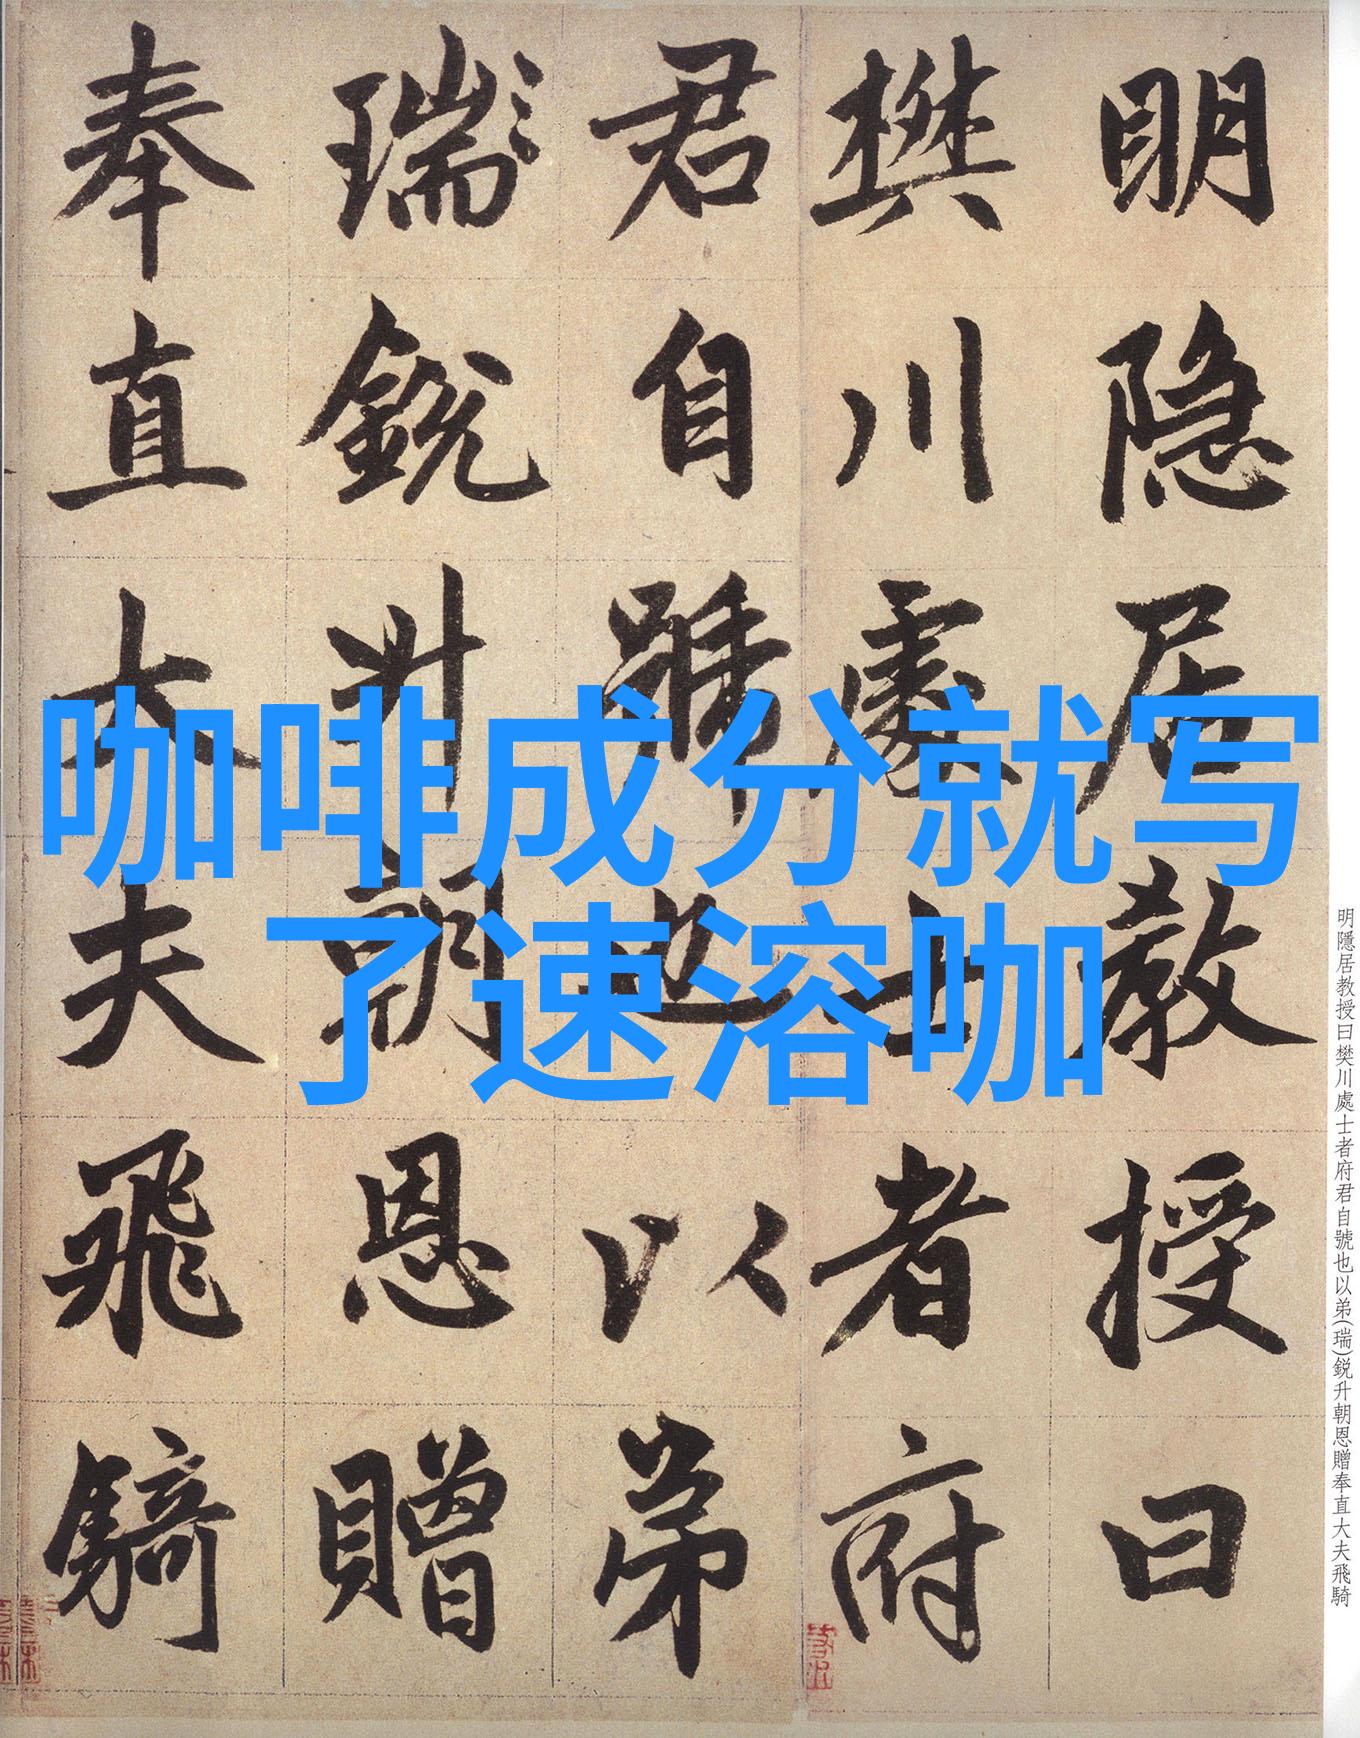 明隐居教授曰
樊川處士者府
君自號也以弟
瑞銳升朝恩贈
奉直大夫飛騎
咖啡成分就写
了速溶咖
明隱居教授曰樊川處士者府君自號也以弟(瑞)鋭升朝恩贈奉直大夫飛騎